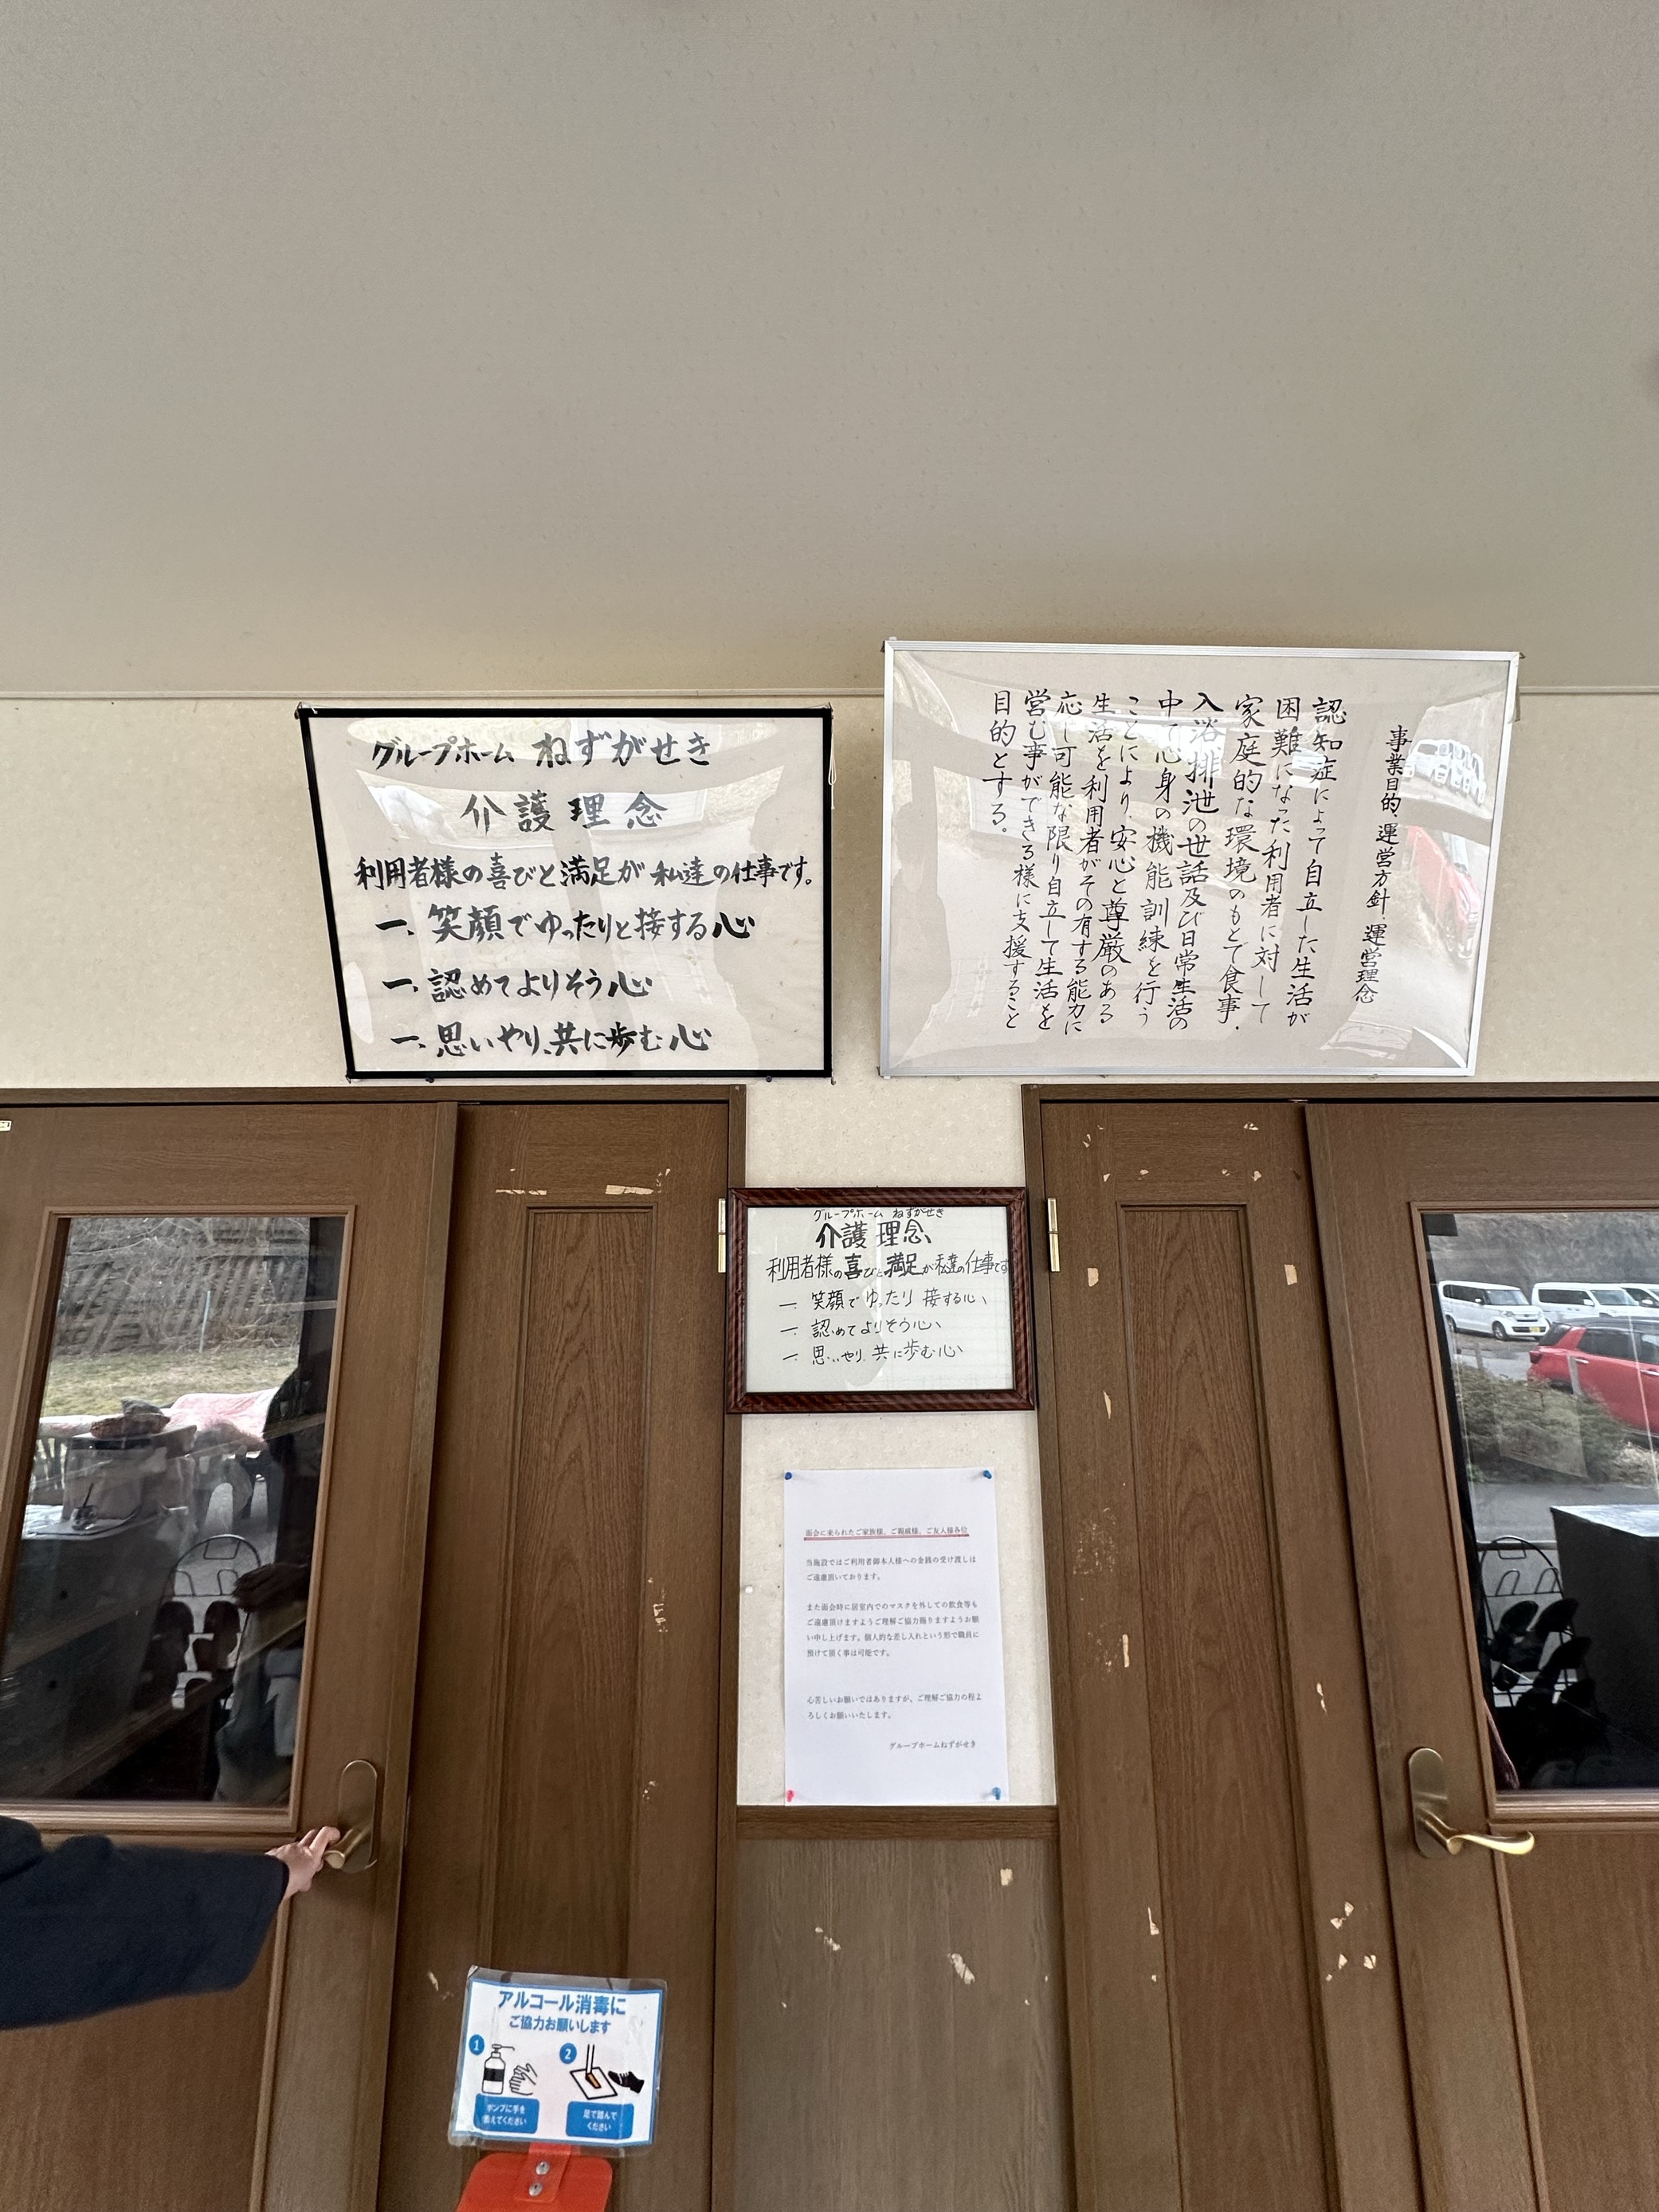 グループホーム ねずがせき
介護理念
利用者様の喜びと満足が私達の仕事です。
一、笑顔でゆったりと接する心
一、認めてよりそう心
一、思いやり、共に歩む心
事業目的、運営方針、運営理念
認知症によって自立した生活が
困難になった利用者に対して
家庭的な環境のもとで食事・
入浴排泄の世話及び日常生活の
中で心身の機能訓練を行う
ことにより、安心と尊厳のある
生活を利用者がその有する能力に
応じ可能な限り自立して生活を
営む事ができる様に支援すること
目的とする。
グループホーム ねずがせき
介護理念
利用者様の喜びと満足が私達の仕事です
一、笑顔でゆったり接する心
一、認めてよりそう心
一、思いやり、共に歩む心
面会に来られたご家族様、ご親戚様、ご友人様各位
当施設ではご利用者御本人様への金銭の受け渡しは
ご遠慮頂いております。
また面会時に居室内でのマスクを外しての飲食等も
ご遠慮頂けますようご理解ご協力賜りますようお願
い申し上げます。個人的な差し入れという形で職員に
預けて頂く事は可能です。
心苦しいお願いではありますが、ご理解ご協力の程よ
ろしくお願いいたします。
グループホームねずがせき
アルコール消毒に
ご協力お願いします
1
2
ポンプに手を
添えてください
足で踏んで
ください